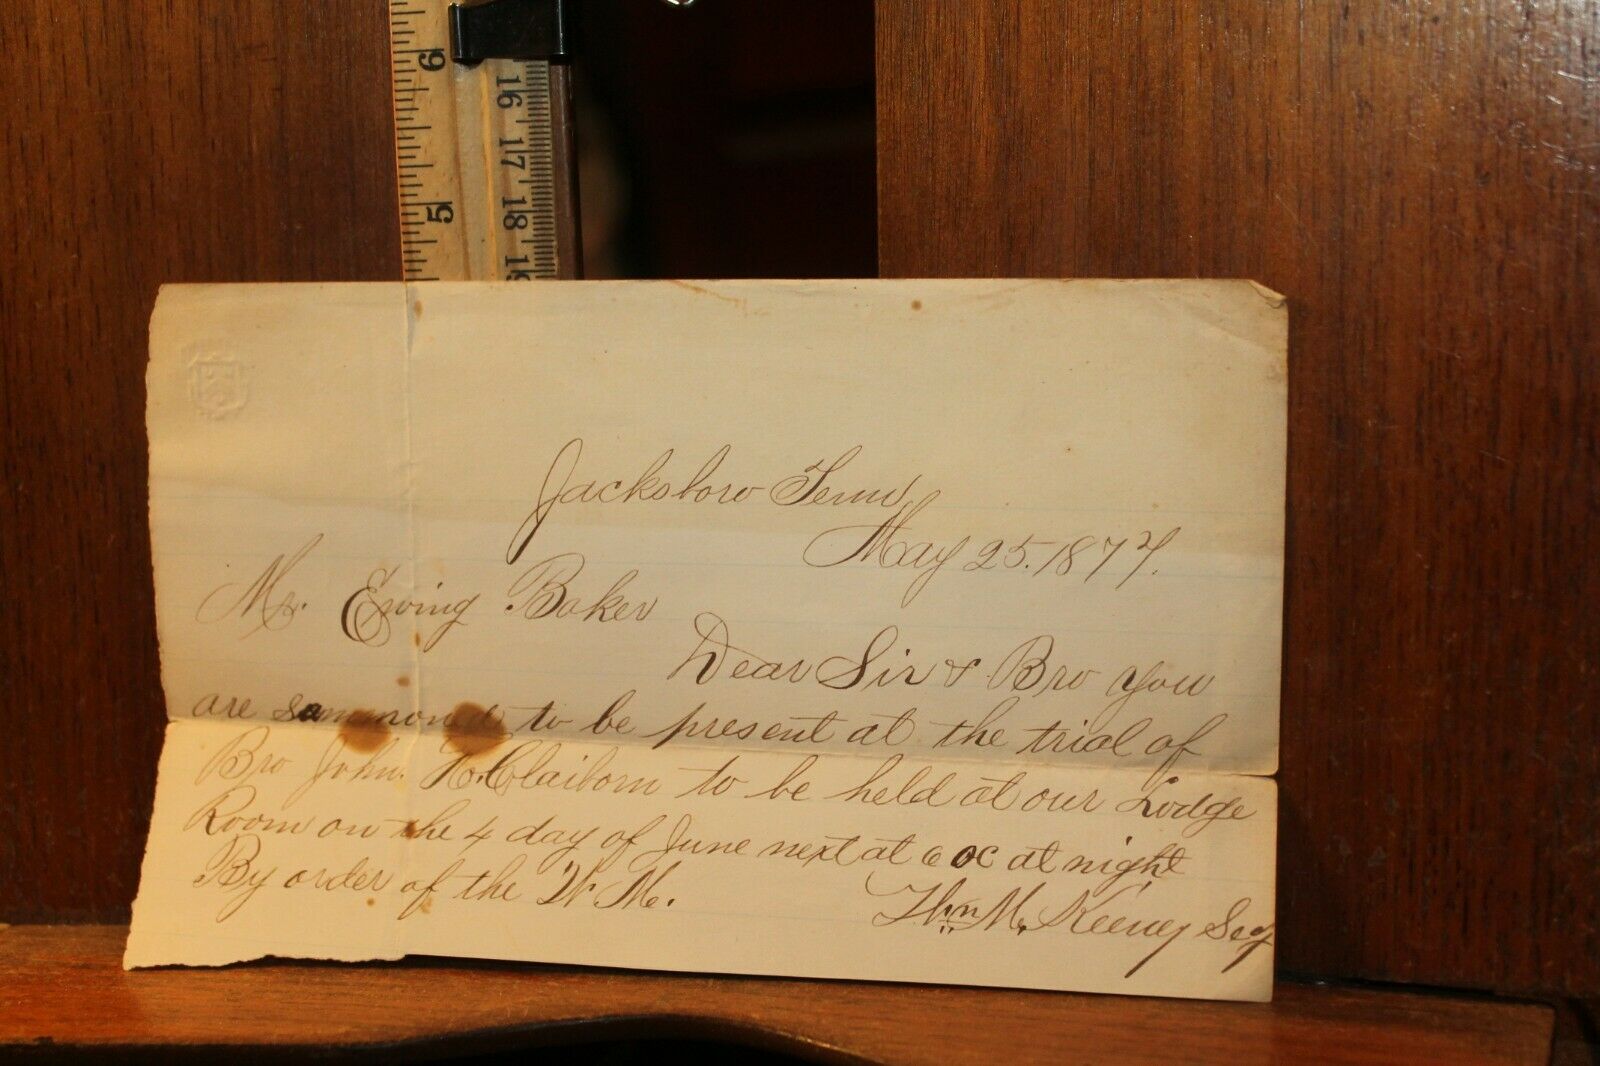 6
5
16 17 18 19
Jacksboro Tenn,
May 25. 1874.
Mr. Ewing Baker
Dear Sir & Bro You
are sammoned to be present at the trial of
Bro John. H. Claiborn to be held at our Lodge
Room on the 4 day of June next at 6 oc at night
By order of the W. M.
M. Keeney Secy